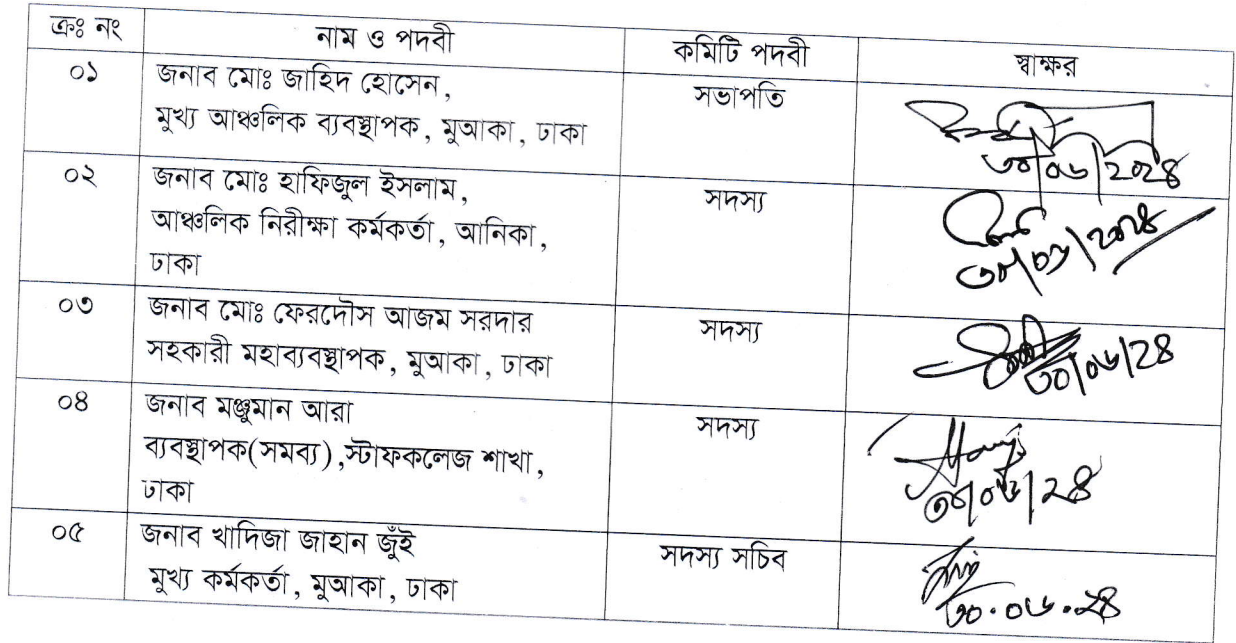 ক্রঃ নং নাম ও পদবী কমিটি পদবী স্বাক্ষর
০১ জনাব মোঃ জাহিদ হোসেন, সভাপতি
মুখ্য আঞ্চলিক ব্যবস্থাপক, মুআকা, ঢাকা
৩০/০৬/২০২৪
০২ জনাব মোঃ হাফিজুল ইসলাম, সদস্য
আঞ্চলিক নিরীক্ষা কর্মকর্তা, আনিকা,
ঢাকা
৩০/০৬/২০২৪
০৩ জনাব মোঃ ফেরদৌস আজম সরদার সদস্য
সহকারী মহাব্যবস্থাপক, মুআকা, ঢাকা
৩০/০৬/২৪
০৪ জনাব মঞ্জুমান আরা সদস্য
ব্যবস্থাপক(সমব্য),স্টাফকলেজ শাখা,
ঢাকা
৩০/০৬/২৪
০৫ জনাব খাদিজা জাহান জুঁই সদস্য সচিব
মুখ্য কর্মকর্তা, মুআকা, ঢাকা
৩০.০৬.২৪